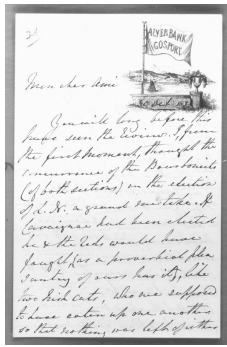 ALVERBANK
GOSPORT
Mon cher Ami
You will long before this
have seen the Review. I, from
the first moment, thought the
concurrence of the Bourbonists
(of both sections) in the election
of L. N. a grand mistake. If
Cavaignac had been elected
he & the Reds would have
fought, (as a proverbial plea
santry of ours has it), like
two Irish cats, who are supposed
to have eaten up one another
so that nothing was left of either